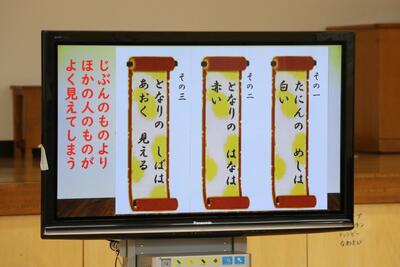 その一
たにんの めしは
白い
その二
となりの はなは
赤い
その三
となりの しばは
あおく 見える
じぶんのものより
ほかの人のものが
よく見えてしまう
Panasonic
なわとび